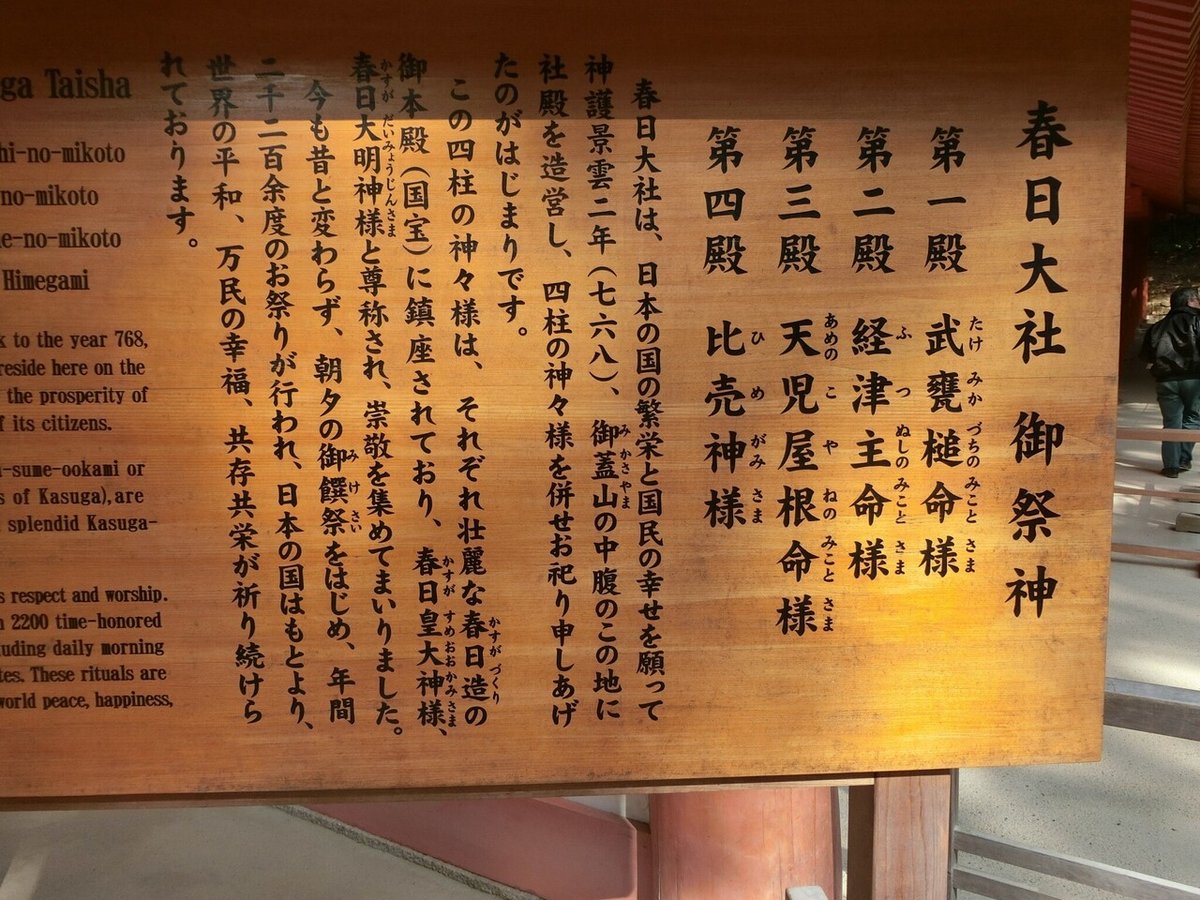 春日大社 御祭神
第一殿 武甕槌命様
第二殿 経津主命様
第三殿 天児屋根命様
第四殿 比売神様
春日大社は、日本の国の繁栄と国民の幸せを願って
神護景雲二年(七六八)、御蓋山の中腹のこの地に
社殿を造営し、四柱の神々様を併せお祀り申しあげ
たのがはじまりです。
この四柱の神々様は、それぞれ壮麗な春日造の
御本殿(国宝)に鎮座されており、春日皇大神様、
春日大明神様と尊称され、崇敬を集めてまいりました。
今も昔と変わらず、朝夕の御饌祭をはじめ、年間
二千二百余度のお祭りが行われ、日本の国はもとより、
世界の平和、万民の幸福、共存共栄が祈り続けら
れております。
ga Taisha
hi-no-mikoto
no-mikoto
e-no-mikoto
Himegami
k to the year 768,
reside here on the
the prosperity of
f its citizens.
a-sume-ookami or
s of Kasuga), are
splendid Kasuga-
s respect and worship.
n 2200 time-honored
uding daily morning
tes. These rituals are
world peace, happiness,